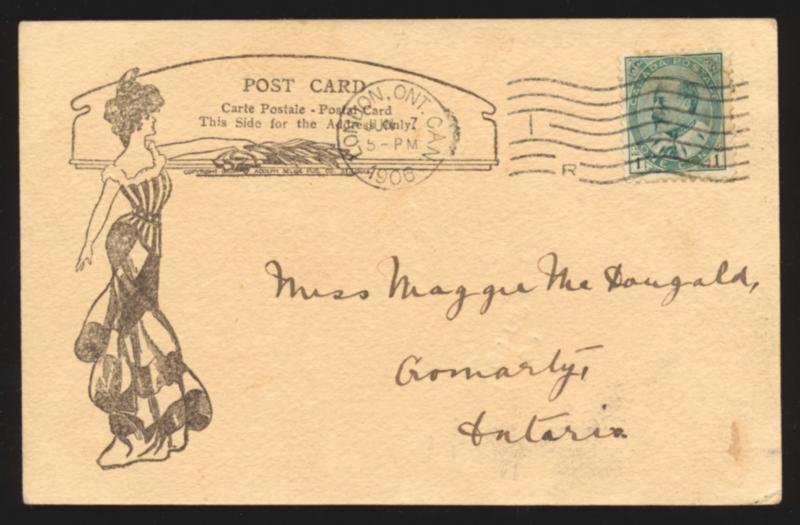 POST CARD
Carte Postale - Postal Card
This Side for the Address Only.
COPYRIGHT ADOLPH SELIGE PUB. CO. ST. LOUIS
LONDON, ONT. CAN
JUN 7
5-PM
1906
I
R
CANADA POSTAGE
1 ONE 1
Miss Maggie McDougald,
Cromarty,
Ontario